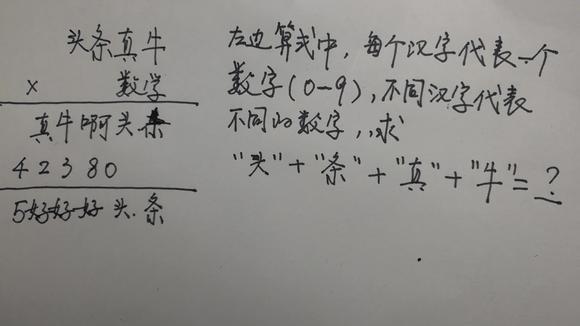 头条真牛
× 数学
真牛啊头条
42380
5好好好头条
左边算式中，每个汉字代表一个
数字(0-9)，不同汉字代表
不同的数字，求
"头"+"条"+"真"+"牛"=?